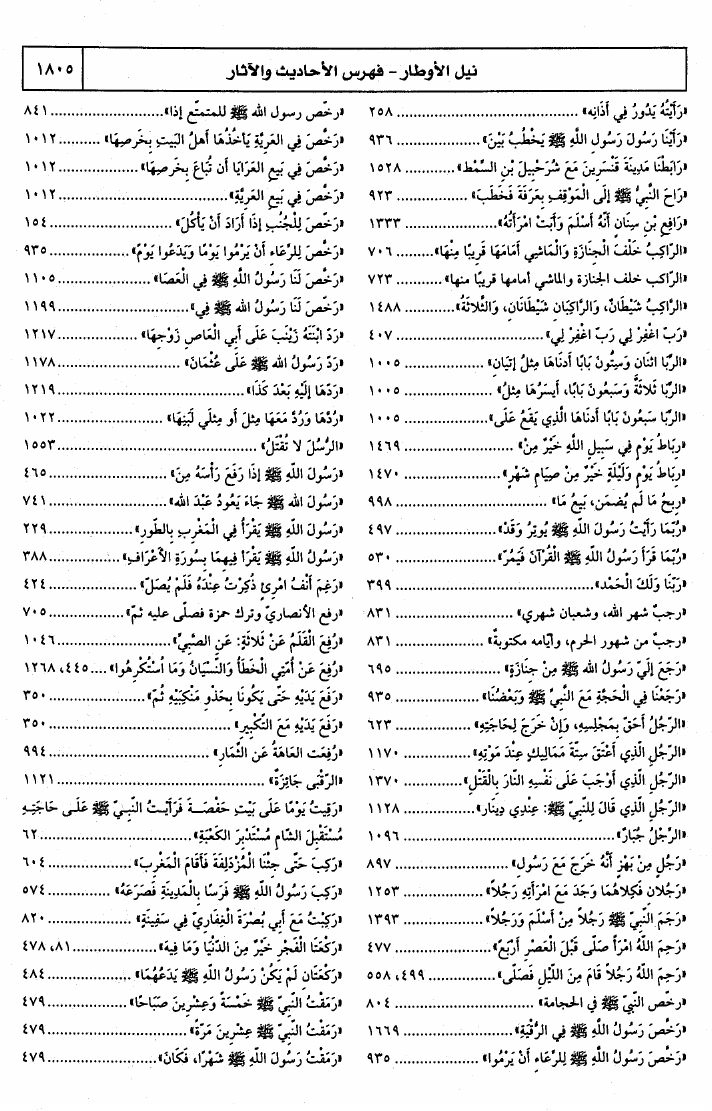 نيل الأوطار – فهرس الأحاديث والآثار
١٨٠٥
«رَأَيْتُهُ يَدُورُ فِي أَذَانِهِ» ........ ٢٥٨
«رَأَيْنَا رَسُولَ رَسُولِ اللَّهِ ﷺ يَخْطُبُ بَيْنَ» ........ ٩٣٦
«رَابَطْنَا مَدِينَةَ قِنَّسْرِينَ مَعَ شُرَحْبِيلَ بْنِ السِّمْطِ» ........ ١٥٢٨
«رَاحَ النَّبِيُّ ﷺ إِلَى الْمَوْقِفِ بِعَرَفَةَ فَخَطَبَ» ........ ٩٢٣
«رَافِعِ بْنِ سِنَانٍ أَنَّهُ أَسْلَمَ وَأَبَتْ امْرَأَتُهُ» ........ ١٣٣٣
«الرَّاكِبُ خَلْفَ الْجِنَازَةِ وَالْمَاشِي أَمَامَهَا قَرِيبًا مِنْهَا» ........ ٧٠٦
«الرَّاكب خلف الجنازة والماشي أمامها قريبًا منها» ........ ٧٢٣
«الرَّاكِبُ شَيْطَانٌ، وَالرَّاكِبَانِ شَيْطَانَانِ، وَالثَّلَاثَةُ» ........ ١٤٨٨
«رَبِّ اغْفِرْ لِي رَبِّ اغْفِرْ لِي» ........ ٤٠٧
«الرِّبَا اثْنَانِ وَسِتُّونَ بَابًا أَدْنَاهَا مِثْلُ إِتْيَانِ» ........ ١٠٠٥
«الرِّبَا ثَلَاثَةٌ وَسَبْعُونَ بَابًا، أَيْسَرُهَا مِثْلُ» ........ ١٠٠٥
«الرِّبَا سَبْعُونَ بَابًا أَدْنَاهَا الَّذِي يَقَعُ عَلَى» ........ ١٠٠٥
«رِبَاطُ يَوْمٍ فِي سَبِيلِ اللَّهِ خَيْرٌ مِنْ» ........ ١٤٦٩
«رِبَاطُ يَوْمٍ وَلَيْلَةٍ خَيْرٌ مِنْ صِيَامِ شَهْرٍ» ........ ١٤٧٠
«رِبِحُ مَا لَمْ يُضْمَن، بَيعُ مَا» ........ ٩٩٨
«رُبَّمَا رَأَيْتُ رَسُولَ اللَّهِ ﷺ يُوتِرُ وَقَدْ» ........ ٤٩٧
«رُبَّمَا قَرَأَ رَسُولُ اللَّهِ ﷺ الْقُرْآنَ فَيَمُرُّ» ........ ٥٣٠
«رَبَّنَا وَلَكَ الْحَمْدُ» ........ ٣٩٩
«رجبٌ شهر الله، وشعبان شهري» ........ ٨٣١
«رجبٌ من شهور الحرم، وأيّامه مكتوبةٌ» ........ ٨٣١
«رَجَعَ إِلَيَّ رَسُولُ الله ﷺ مِنْ جِنَازَةٍ» ........ ٦٩٥
«رَجَعْنَا فِي الْحَجَّةِ مَعَ النَّبِيِّ ﷺ وَبَعْضُنَا» ........ ٩٣٥
«الرَّجُلُ أَحَقُّ بِمَجْلِسِهِ، وَإِنْ خَرَجَ لِحَاجَتِهِ» ........ ٦٢٣
«الرَّجُلِ الَّذِي أَعْتَقَ سِتَّةَ مَمَالِيكٍ عِنْدَ مَوْتِهِ» ........ ١١٧٠
«الرَّجُلِ الَّذِي أَوْجَبَ عَلَى نَفْسِهِ النارَ بالْقَتْلِ» ........ ١٣٧٠
«الرَّجُلِ الَّذِي قَالَ لِلنَّبِيِّ ﷺ: عِنْدِي دِينَار» ........ ١١٢٨
«الرِّجْلُ جُبَارٌ» ........ ١٠٩٦
«رَجُلٍ مِنْ بَهْزٍ أَنَّهُ خَرَجَ مَعَ رَسُولِ» ........ ٨٩٧
«رَجُلَان فَكِلاهُمَا وَجَدَ مَعَ امْرَأَتِهِ رَجُلاً» ........ ١٢٥٣
«رَجَمَ النَّبِيُّ ﷺ رَجُلاً مِنْ أَسْلَمَ وَرَجُلاً» ........ ١٣٩٣
«رَحِمَ اللَّهُ امْرَأً صَلَّى قَبْلَ الْعَصْرِ أَرْبَعًا» ........ ٤٧٧
«رَحِمَ اللَّهُ رَجُلاً قَامَ مِنَ اللَّيْلِ فَصَلَّى» ........ ٤٩٩، ٥٥٨
«رخص النّبيّ ﷺ في الحجامة» ........ ٨٠٤
«رَخَّصَ رَسُولُ اللَّهِ ﷺ فِي الرُّقْيَةِ» ........ ١٦٦٩
«رَخَّصَ رَسُولُ اللَّهِ ﷺ لِلرِّعَاءِ أَنْ يَرْمُوا» ........ ٩٣٥
«رخّص رسول الله ﷺ للمتمتّع إذا» ........ ٨٤١
«رَخَّصَ فِي العَرِيَّةِ يَأْخُذُهَا أَهلُ البَيتِ بِخَرصِهَا» ........ ١٠١٢
«رَخَّصَ فِي بَيعِ العَرَايَا أَن تُبَاعَ بِخَرصِهَا» ........ ١٠١٢
«رَخَّصَ فِي بَيعِ العَرِيَّةِ» ........ ١٠١٢
«رَخَّصَ لِلْجُنُبِ إِذَا أَرَادَ أَنْ يَأْكُلَ» ........ ١٥٤
«رَخَّصَ لِلرِّعَاءِ أَنْ يَرْمُوا يَوْمًا وَيَدَعُوا يَوْمً» ........ ٩٣٥
«رَخَّصَ لَنَا رَسُولُ اللَّهِ ﷺ فِي الْعَصَا» ........ ١١٠٥
«رَخَّصَ لَنَا رَسُولُ الله ﷺ فِي» ........ ١١٩٩
«رَدَّ ابْنَتَهُ زَيْنَبَ عَلَى أَبِي الْعَاصِ زَوْجِهَا» ........ ١٢١٧
«رَدَّ رَسُولُ الله ﷺ عَلَى عُثْمَانَ» ........ ١١٧٨
«رَدَّهَا إِلَيْهِ بَعْدَ كَذَا» ........ ١٢١٩
«رُدَّهَا وَرُدَّ مَعَهَا مِثلَ أَو مِثلَي لَبَنِهَا» ........ ١٠٢٢
«الرُّسُلَ لَا تُقْتَلُ» ........ ١٥٥٣
«رَسُولَ اللَّهِ ﷺ إِذَا رَفَعَ رَأْسَهُ مِنَ» ........ ٤٦٥
«رَسُولَ الله ﷺ جَاءَ يَعُودُ عَبْدَ الله» ........ ٧٤١
«رَسُولَ اللَّهِ ﷺ يَقْرَأُ فِي الْمَغْرِبِ بِالطُّورِ» ........ ٢٢٩
«رَسُولَ اللَّهِ ﷺ يَقْرَأُ فِيهِمَا بِسُورَةِ الأَعْرَافِ» ........ ٣٨٨
«رَغِمَ أَنْفُ امْرِئٍ ذُكِرْتُ عِنْدَهُ فَلَمْ يُصَلِّ» ........ ٤٢٤
«رفع الأنصاريّ وترك حمزة فصلّى عليه ثمّ» ........ ٧٠٥
«رُفِعَ الْقَلَمُ عَنْ ثَلَاثَةٍ: عَنِ الصَّبِيِّ» ........ ١٠٤٦
«رُفِعَ عَنْ أُمَّتِي الْخَطَأُ وَالنِّسْيَانُ وَمَا اُسْتُكْرِهُوا» ........ ٤٤٥، ١٢٦٨
«رَفَعَ يَدَيْهِ حَتَّى يَكُونَا بِحَذْوِ مَنْكِبَيْهِ ثُمَّ» ........ ٣٥٠
«رَفَعَ يَدَيْهِ مَعَ التَّكْبِيرِ» ........ ٣٥٠
«رُفِعَت العَاهَةُ عَنِ الثِّمَارِ» ........ ٩٩٤
«الرُّقْبَى جَائِزَةٌ» ........ ١١٢١
«رَقِيتُ يَوْمًا عَلَى بَيْتِ حَفْصَةَ فَرَأَيْتُ النَّبِيَّ ﷺ عَلَى حَاجَتِهِ
مُسْتَقْبِلَ الشَّامِ مُسْتَدْبِرَ الْكَعْبَةِ» ........ ٦٢
«رَكِبَ حَتَّى جِئْنَا الْمُزْدَلِفَةَ فَأَقَامَ الْمَغْرِبَ» ........ ٦٠٤
«رَكِبَ رَسُولُ اللَّهِ ﷺ فَرَسًا بِالْمَدِينَةِ فَصَرَعَهُ» ........ ٥٧٤
«رَكِبْتُ مَعَ أَبِي بُصْرَةَ الْغِفَارِيِّ فِي سَفِينَةٍ» ........ ٨٢٠
«رَكْعَتَا الْفَجْرِ خَيْرٌ مِنَ الدُّنْيَا وَمَا فِيهَ» ........ ٨١، ٤٧٨
«رَكْعَتَانِ لَمْ يَكُنْ رَسُولُ اللَّهِ ﷺ يَدَعُهُمَا» ........ ٤٨٤
«رَمَقْتُ النَّبِيَّ ﷺ خَمْسَةً وَعِشْرِينَ صَبَاحًا» ........ ٤٧٩
«رَمَقْتُ النَّبِيَّ ﷺ عِشْرِينَ مَرَّةً» ........ ٤٧٩
«رَمَقْتُ رَسُولَ اللَّهِ ﷺ شَهْرًا، فَكَانَ» ........ ٤٧٩